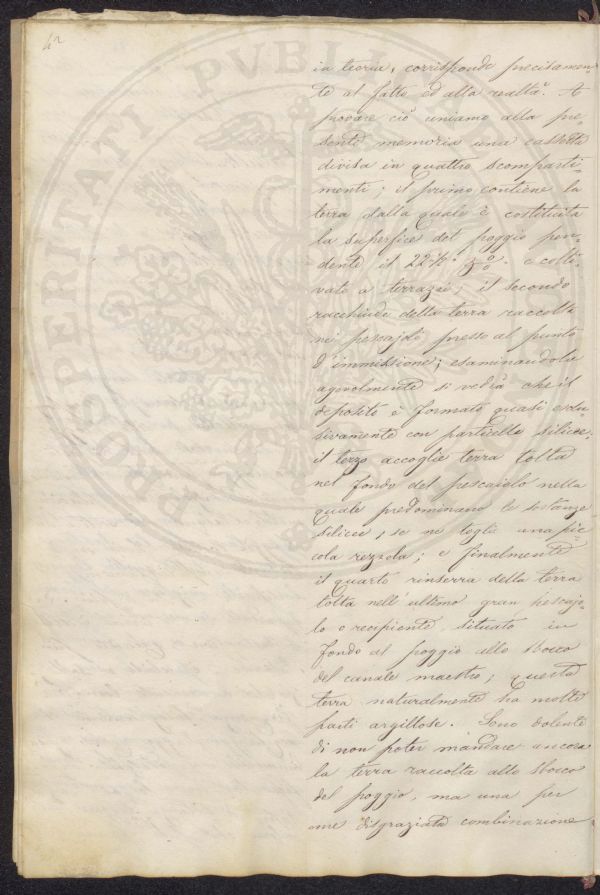 42
in teoria, corrisponde precisamen-
te al fatto ed alla realtà. A
provare ciò uniamo alla pre-
sente memoria una cassetta
divisa in quattro scomparti-
menti; il primo contiene la
terra dalla quale è costituita
la superfice del poggio pen-
dente il 22 ½ % e colti-
vato a terrazzi; il secondo
racchiude della terra raccolta
nei pescajoli presso al punto
d'immissione; esaminandola
agevolmente si vedrà che il
deposito è formato quasi esclu-
sivamente con particelle silicee;
il terzo accoglie terra tolta
nel fondo del pescaiolo nella
quale predominano le sostanze
silicee, se ne togli una pic-
cola; e finalmente
il quarto rinserra della terra
tolta nell'ultimo gran pescajo-
lo o recipiente situato in
fondo al poggio allo sbocco
del canale maestro; questa
terra naturalmente ha molte
parti argillose. Sono dolente
di non poter mandare ancora
la terra raccolta allo sbocco
del poggio, ma una per
me disgraziata combinazione
PROSPERITATI PVBLICAE